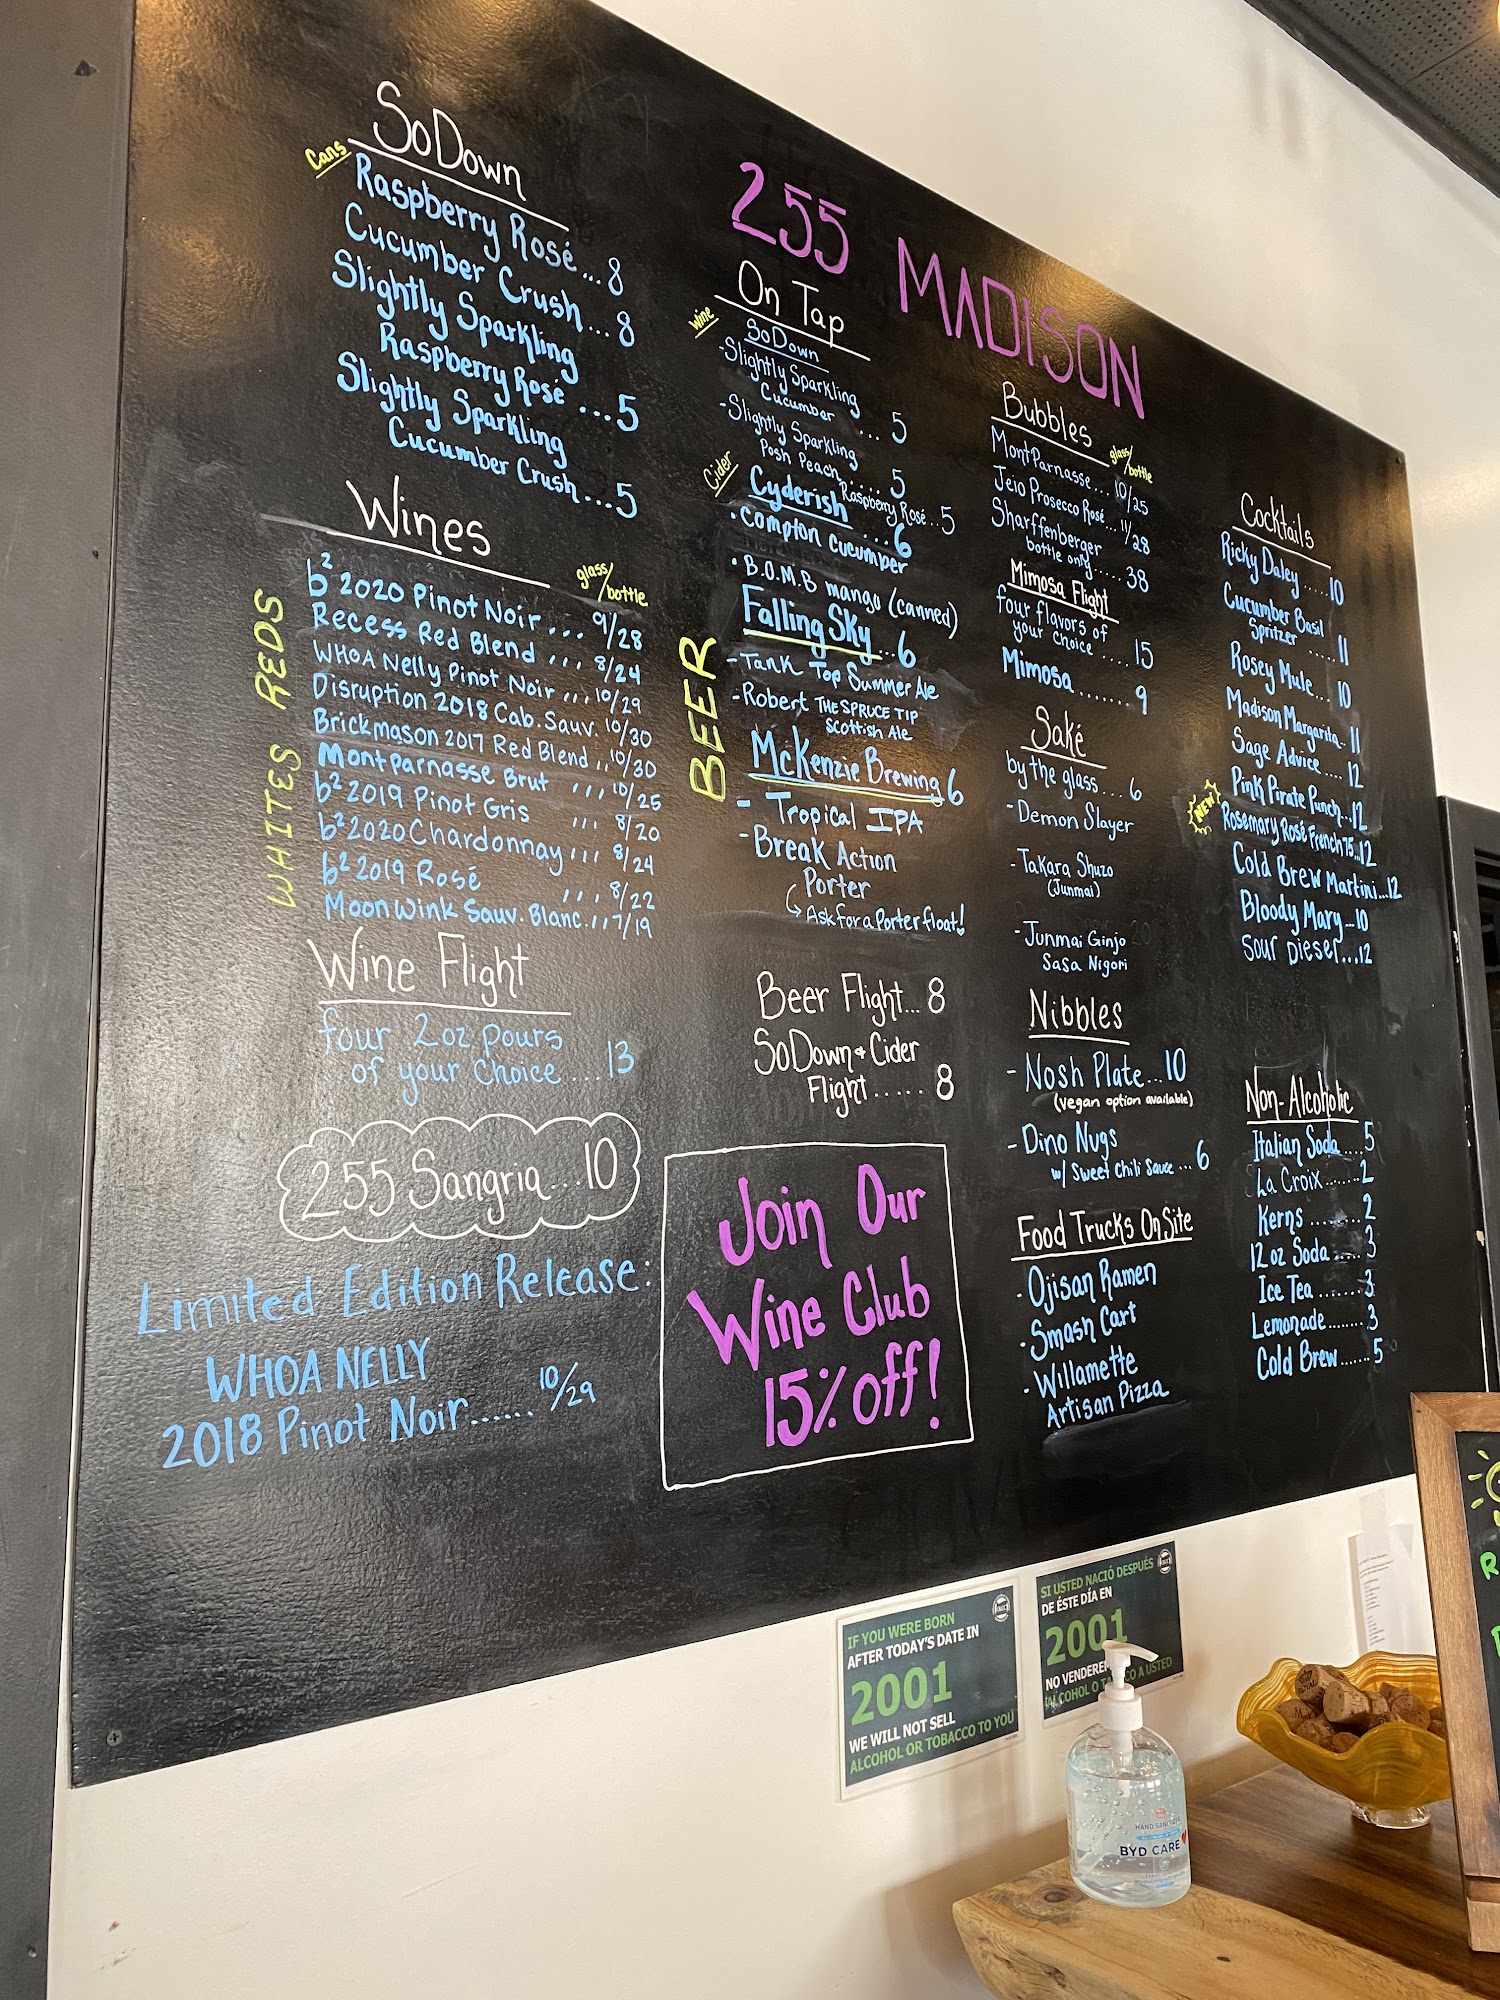 255 MADISON
SoDown
Cans
Raspberry Rosé...8
Cucumber Crush...8
Slightly Sparkling
Raspberry Rosé ...5
Slightly Sparkling
Cucumber Crush...5
Wines
glass/bottle
REDS
b² 2020 Pinot Noir... 9/28
Recess Red Blend ... 8/24
WHOA Nelly Pinot Noir... 10/29
Disruption 2018 Cab. Sauv. 10/30
Brickmason 2017 Red Blend.. 10/30
WHITES
Montparnasse Brut ... 10/25
b² 2019 Pinot Gris ... 8/20
b² 2020 Chardonnay... 8/24
b² 2019 Rosé ... 8/22
Moon Wink Sauv. Blanc... 7/19
Wine Flight
four 2oz pours
of your choice....13
255 Sangria...10
Limited Edition Release:
WHOA NELLY
2018 Pinot Noir...... 10/29
On Tap
wine
SoDown
-Slightly Sparkling
Cucumber ... 5
-Slightly Sparkling
Posh Peach..... 5
Raspberry Rosé..5
Cider
Cyderish ...6
·Compton Cucumber
·B.O.M.B mango (canned)
BEER
Falling Sky...6
-Tank Top Summer Ale
-Robert THE SPRUCE TIP
Scottish Ale
McKenzie Brewing 6
- Tropical IPA
-Break Action
Porter
↳Ask for a Porter float!
Beer Flight...8
SoDown + Cider
Flight.....8
Join Our
Wine Club
15% off!
Bubbles
glass/bottle
MontParnasse... 10/25
Jeio Prosecco Rosé... 11/28
Sharffenberger
bottle only..... 38
Mimosa Flight
four flavors of
your choice.....15
Mimosa......9
Saké
by the glass...6
-Demon Slayer
-Takara Shuzo
(Junmai)
-Junmai Ginjo
Sasa Nigori
Nibbles
- Nosh Plate...10
(vegan option available)
-Dino Nugs
w/ Sweet Chili Sauce...6
Food Trucks On Site
·Ojisan Ramen
·Smash Cart
·Willamette
Artisan Pizza
Cocktails
Ricky Daley.....10
Cucumber Basil
Spritzer .....11
Rosey Mule...10
Madison Margarita..11
Sage Advice....12
Pink Pirate Punch..12
NEW
Rosemary Rosé French 75...12
Cold Brew Martini...12
Bloody Mary...10
Sour Diesel...12
Non-Alcoholic
Italian Soda....5
La Croix.......2
Kerns ........2
12 oz Soda.....3
Ice Tea .......3
Lemonade........3
Cold Brew.......5
IF YOU WERE BORN
AFTER TODAY'S DATE IN
2001
WE WILL NOT SELL
ALCOHOL OR TOBACCO TO YOU
SI USTED NACIÓ DESPUÉS
DE ÉSTE DÍA EN
2001
ALCOHOL O A USTED
HAND SANITIZER
BYD CARE